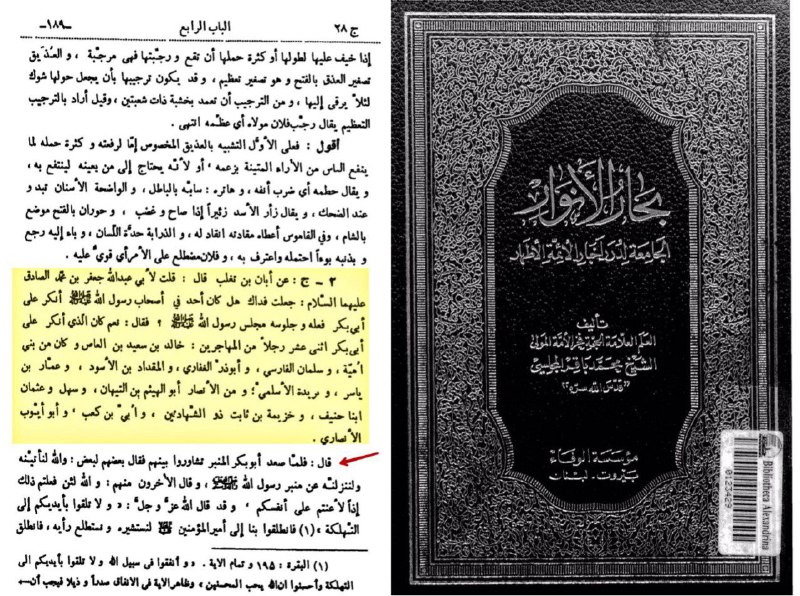 ج ٢٨
الباب الرابع
-١٨٩-
إذا خيف عليها لطولها أو كثرة حملها أن تقع و رجّبتها فهى مرجّبة ، و العُذَيق
تصغير العذق بالفتح و هو تصغير تعظيم ، و قد يكون ترجيبها بأن يجعل حولها شوك
لئلاّ يرقى إليها ، و من الترجيب أن تعمد بخشبة ذات شعبتين ، وقيل أراد بالترجيب
التعظيم يقال رجّب فلان مولاه أي عظّمه انتهى .
أقول : فعلى الأوّل التشبيه بالعذيق المخصوص إمّا لرفعته و كثرة حمله لما
ينفع الناس من الأراء المتينة بزعمه ، أو لأنّه يحتاج إلى من يعينه لينتفع به ،
و يقال حطمه أي ضرب أنفه ، و هاتره : سابّه بالباطل ، و الواضحة الأسنان تبد و
عند الضحك ، و يقال زأر الأسد زئيراً إذا صاح و غضب ، و حوران بالفتح موضع
بالشام ، وفي القاموس أعطاه مقادته انقاد له ، و الذرابة حدّة اللّسان ، و باء إليه رجع
و بذنبه بوءاً احتمله واعترف به ، و فلان مضطلع على الأمر أي قويّ عليه .
٢ - ج : عن أبان بن تغلب قال : قلت لأبي عبدالله جعفر بن محمّد الصادق
عليهما السّلام : جعلت فداك هل كان أحد في أصحاب رسول الله ﷺ أنكر على
أبي بكر فعله و جلوسه مجلس رسول الله ﷺ ؟ فقال : نعم كان الّذي أنكر على
أبي بكر اثنى عشر رجلاً من المهاجرين : خالد بن سعيد بن العاص و كان من بني
أميّة ، و سلمان الفارسي ، و أبوذرّ الغفاري ، و المقداد بن الأسود ، و عمّار بن
ياسر ، و بريدة الأسلمي؛ و من الأنصار أبو الهيثم بن التيهان ، و سهل و عثمان
ابنا حنيف ، و خزيمة بن ثابت ذو الشهادتين ، و أُبيّ بن كعب ، و أبو أيّوب
الأنصاري .
قال : فلمّا صعد أبوبكر المنبر تشاوروا بينهم فقال بعضهم لبعض : والله لنأتينّه
ولننزلنّه عن منبر رسول الله ﷺ ، و قال الآخرون منهم : و الله لئن فعلتم ذلك
إذاً لأعنتم على أنفسكم ، و قد قال الله عزّ و جلّ : « و لا تلقوا بأيديكم إلى
التّهلكة » (١) فانطلقوا بنا إلى أميرالمؤمنين ﷺ لنستشيره و نستطلع رأيه ، فانطلق
(١) البقرة : ١٩٥ و تمام الاية . « و أنفقوا فى سبيل الله و لا تلقوا بأيديكم الى
التهلكة وأحسنوا ان الله يحب المحسنين ، وظاهر الاية فى الانفاق صدراً و ذيلا فيجب أن
بحار الأنوار
الجامعة لدرر أخبار الأئمة الأطهار
تأليف
العلم العلامة الحجة فخر الأمة المولى
الشيخ محمد باقر المجلسي
"قدس الله سره"
مؤسسة الوفاء
بيروت - لبنان
Bibliotheca Alexandrina
0123429